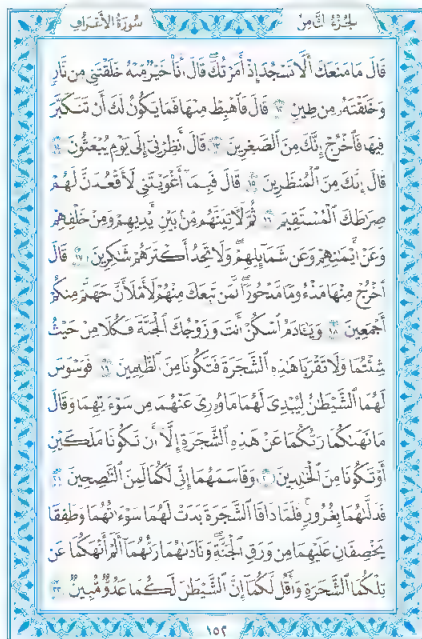 الجزء الثامن
سورة الأعراف
قَالَ مَا مَنَعَكَ أَلَّا تَسْجُدَ إِذْ أَمَرْتُكَ ۖ قَالَ أَنَا۠ خَيْرٌ مِّنْهُ خَلَقْتَنِى مِن نَّارٍ
وَخَلَقْتَهُۥ مِن طِينٍ ١٢ قَالَ فَٱهْبِطْ مِنْهَا فَمَا يَكُونُ لَكَ أَن تَتَكَبَّرَ
فِيهَا فَٱخْرُجْ إِنَّكَ مِنَ ٱلصَّٰغِرِينَ ١٣ قَالَ أَنظِرْنِىٓ إِلَىٰ يَوْمِ يُبْعَثُونَ ١٤
قَالَ إِنَّكَ مِنَ ٱلْمُنظَرِينَ ١٥ قَالَ فَبِمَآ أَغْوَيْتَنِى لَأَقْعُدَنَّ لَهُمْ
صِرَٰطَكَ ٱلْمُسْتَقِيمَ ١٦ ثُمَّ لَءَاتِيَنَّهُم مِّنۢ بَيْنِ أَيْدِيهِمْ وَمِنْ خَلْفِهِمْ
وَعَنْ أَيْمَٰنِهِمْ وَعَن شَمَآئِلِهِمْ ۖ وَلَا تَجِدُ أَكْثَرَهُمْ شَٰكِرِينَ ١٧ قَالَ
ٱخْرُجْ مِنْهَا مَذْءُومًا مَّدْحُورًا ۖ لَّمَن تَبِعَكَ مِنْهُمْ لَأَمْلَأَنَّ جَهَنَّمَ مِنكُمْ
أَجْمَعِينَ ١٨ وَيَٰٓـَٔادَمُ ٱسْكُنْ أَنتَ وَزَوْجُكَ ٱلْجَنَّةَ فَكُلَا مِنْ حَيْثُ
شِئْتُمَا وَلَا تَقْرَبَا هَٰذِهِ ٱلشَّجَرَةَ فَتَكُونَا مِنَ ٱلظَّٰلِمِينَ ١٩ فَوَسْوَسَ
لَهُمَا ٱلشَّيْطَٰنُ لِيُبْدِىَ لَهُمَا مَا وُۥرِىَ عَنْهُمَا مِن سَوْءَٰتِهِمَا وَقَالَ
مَا نَهَىٰكُمَا رَبُّكُمَا عَنْ هَٰذِهِ ٱلشَّجَرَةِ إِلَّآ أَن تَكُونَا مَلَكَيْنِ
أَوْ تَكُونَا مِنَ ٱلْخَٰلِدِينَ ٢٠ وَقَاسَمَهُمَآ إِنِّى لَكُمَا لَمِنَ ٱلنَّٰصِحِينَ ٢١
فَدَلَّىٰهُمَا بِغُرُورٍ ۚ فَلَمَّا ذَاقَا ٱلشَّجَرَةَ بَدَتْ لَهُمَا سَوْءَٰتُهُمَا وَطَفِقَا
يَخْصِفَانِ عَلَيْهِمَا مِن وَرَقِ ٱلْجَنَّةِ ۖ وَنَادَىٰهُمَا رَبُّهُمَآ أَلَمْ أَنْهَكُمَا عَن
تِلْكُمَا ٱلشَّجَرَةِ وَأَقُل لَّكُمَآ إِنَّ ٱلشَّيْطَٰنَ لَكُمَا عَدُوٌّ مُّبِينٌ ٢٢
١٥٢